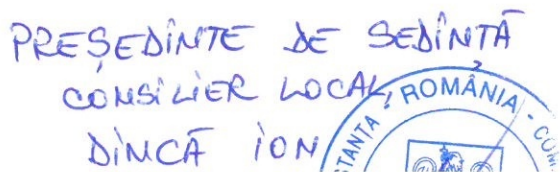 PREȘEDINTE DE SEDINȚĂ
CONSILIER LOCAL,
DINCĂ ION
ROMÂNIA